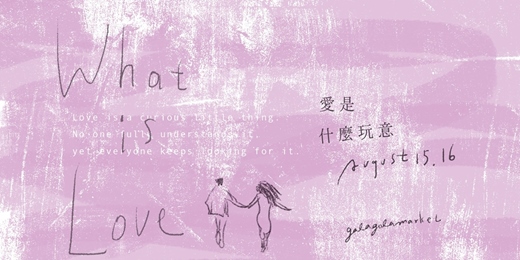 What
is
Love
Love is a curious little thing
No one fully understands it.
yet everyone keeps looking for it.
愛是
什麼玩意
August 15.16
galagalamarket